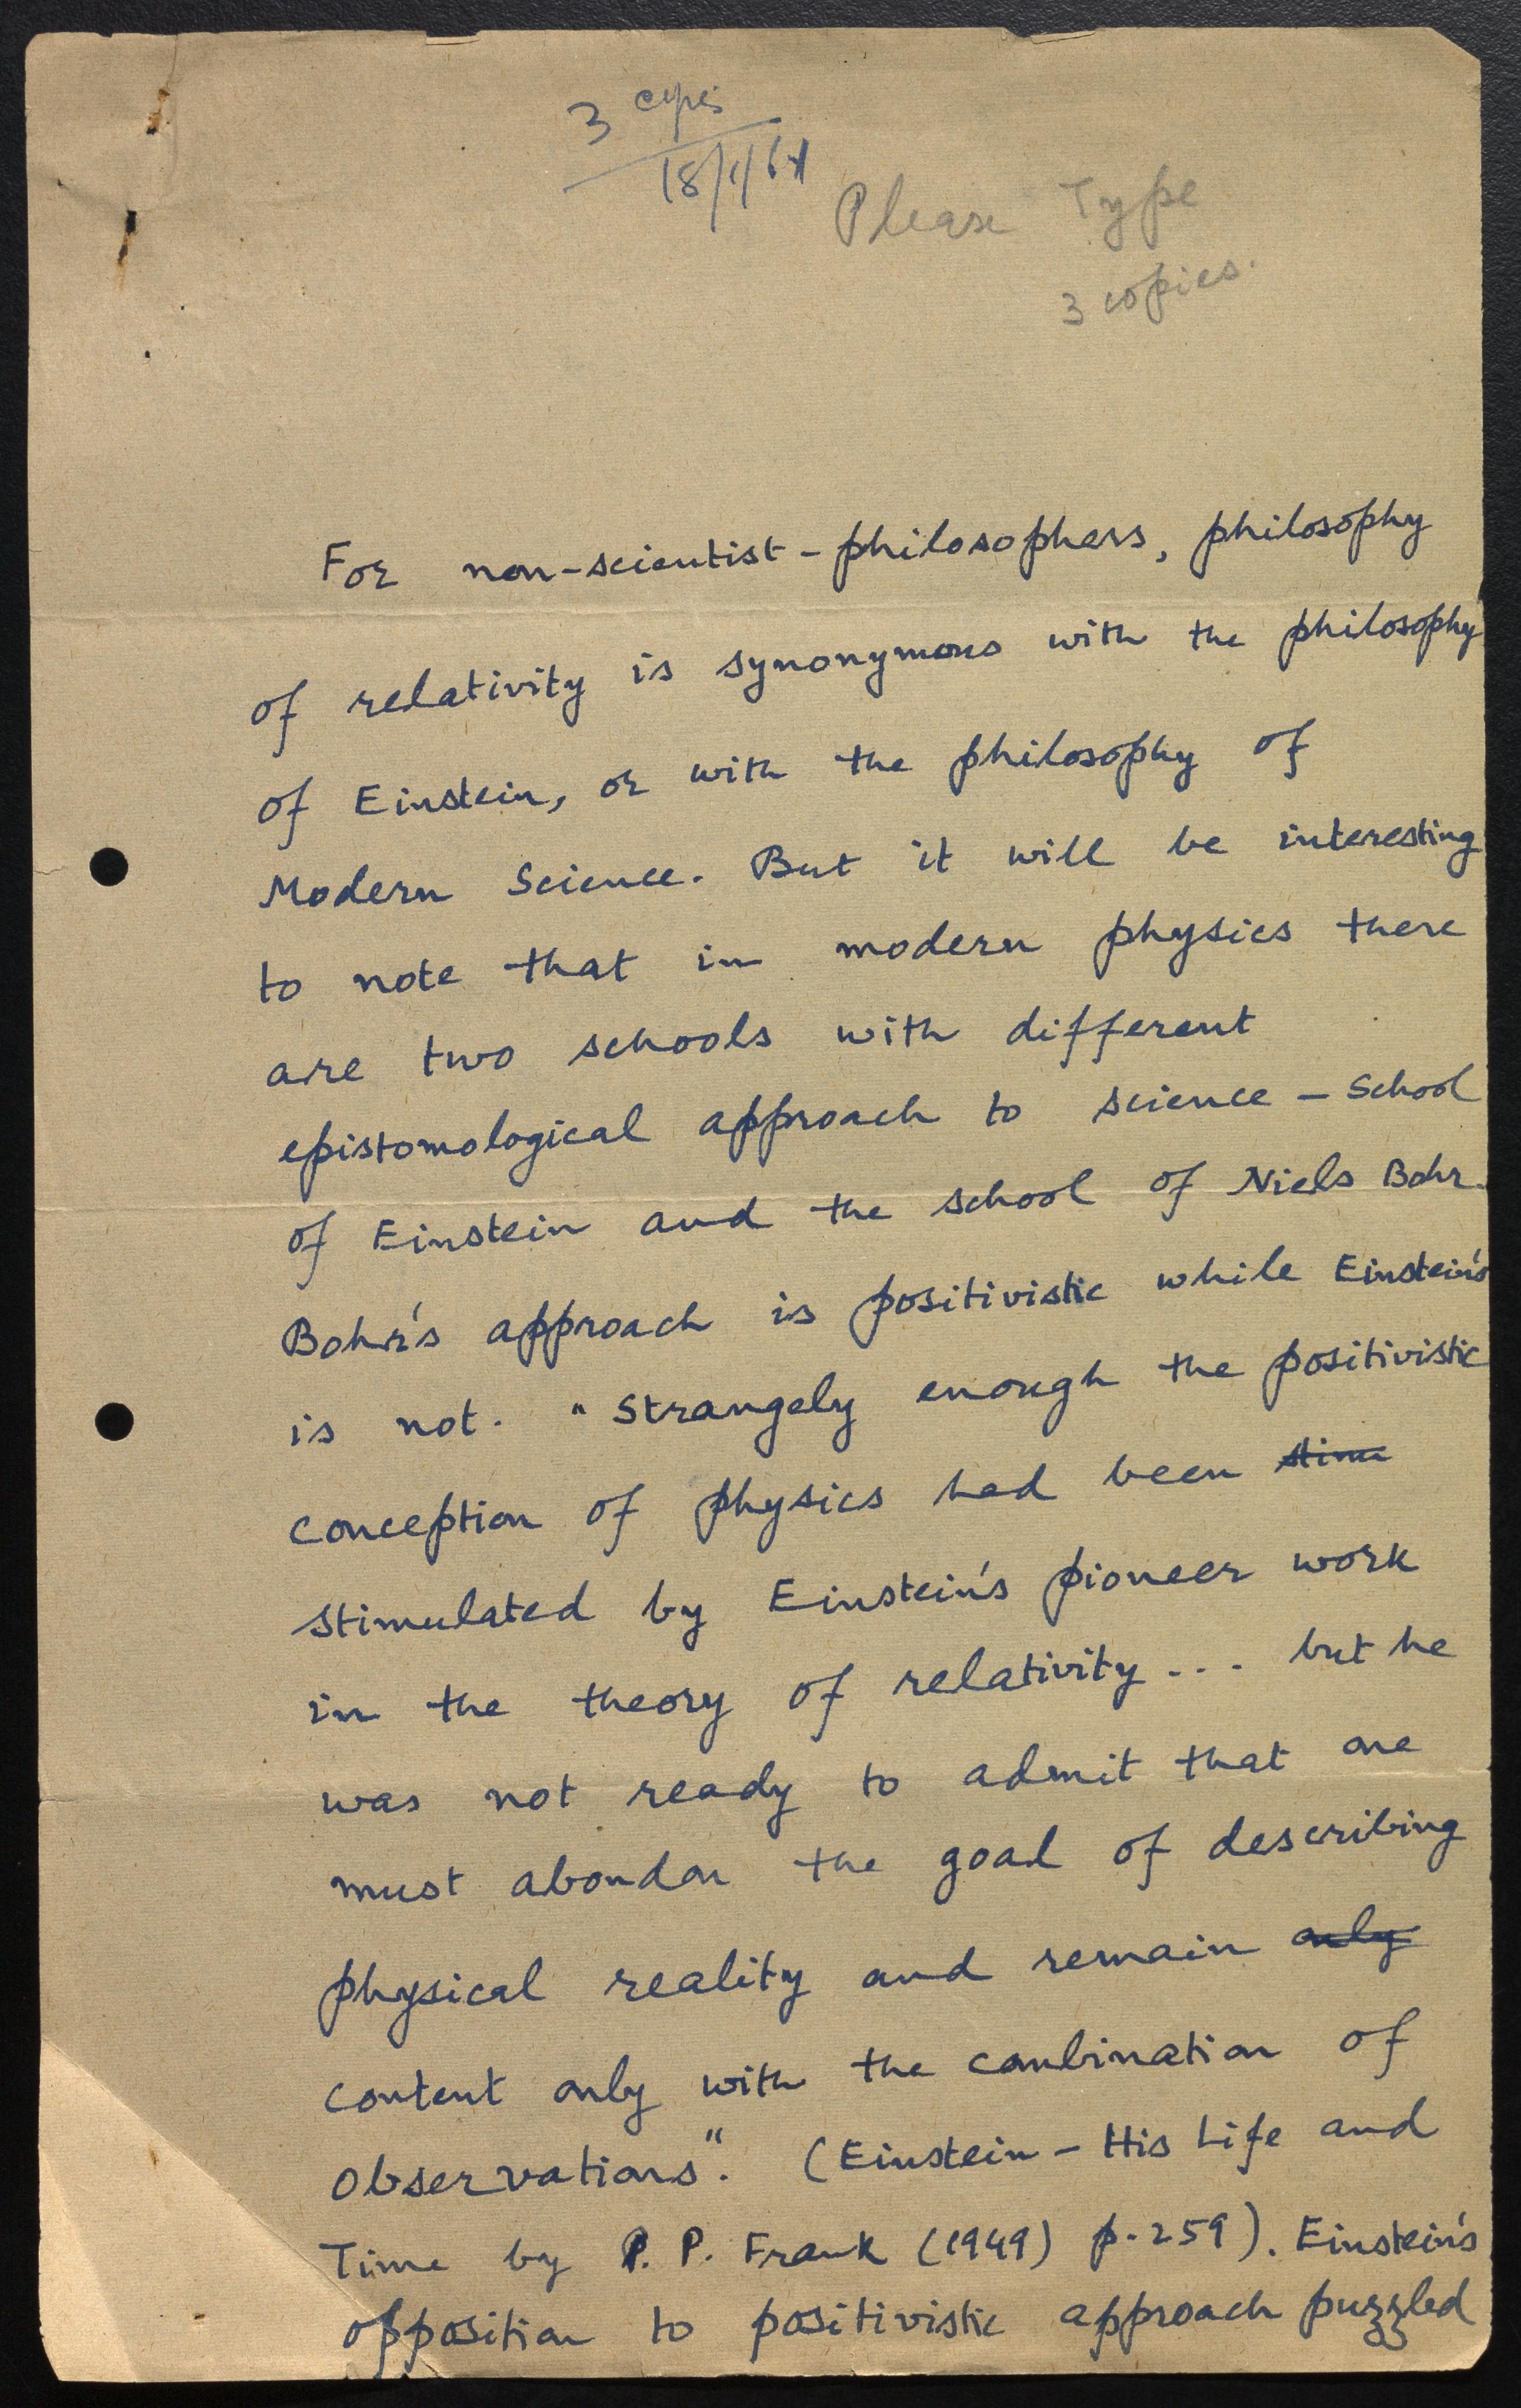 3 copies
18/1/61
Please Type
3 copies.
For non-scientist-philosophers, philosophy
of relativity is synonymous with the philosophy
of Einstein, or with the philosophy of
Modern Science. But it will be interesting
to note that in modern physics there
are two schools with different
epistomological approach to science - School
of Einstein and the school of Niels Bohr.
Bohr's approach is positivistic while Einstein's
is not. "Strangely enough the positivistic
conception of physics had been stimu
stimulated by Einstein's pioneer work
in the theory of relativity... but he
was not ready to admit that one
must abondon the goal of describing
physical reality and remain only
content only with the combination of
observations". (Einstein - His Life and
Time by P. P. Frank (1949) p. 259). Einstein's
opposition to positivistic approach puzzled